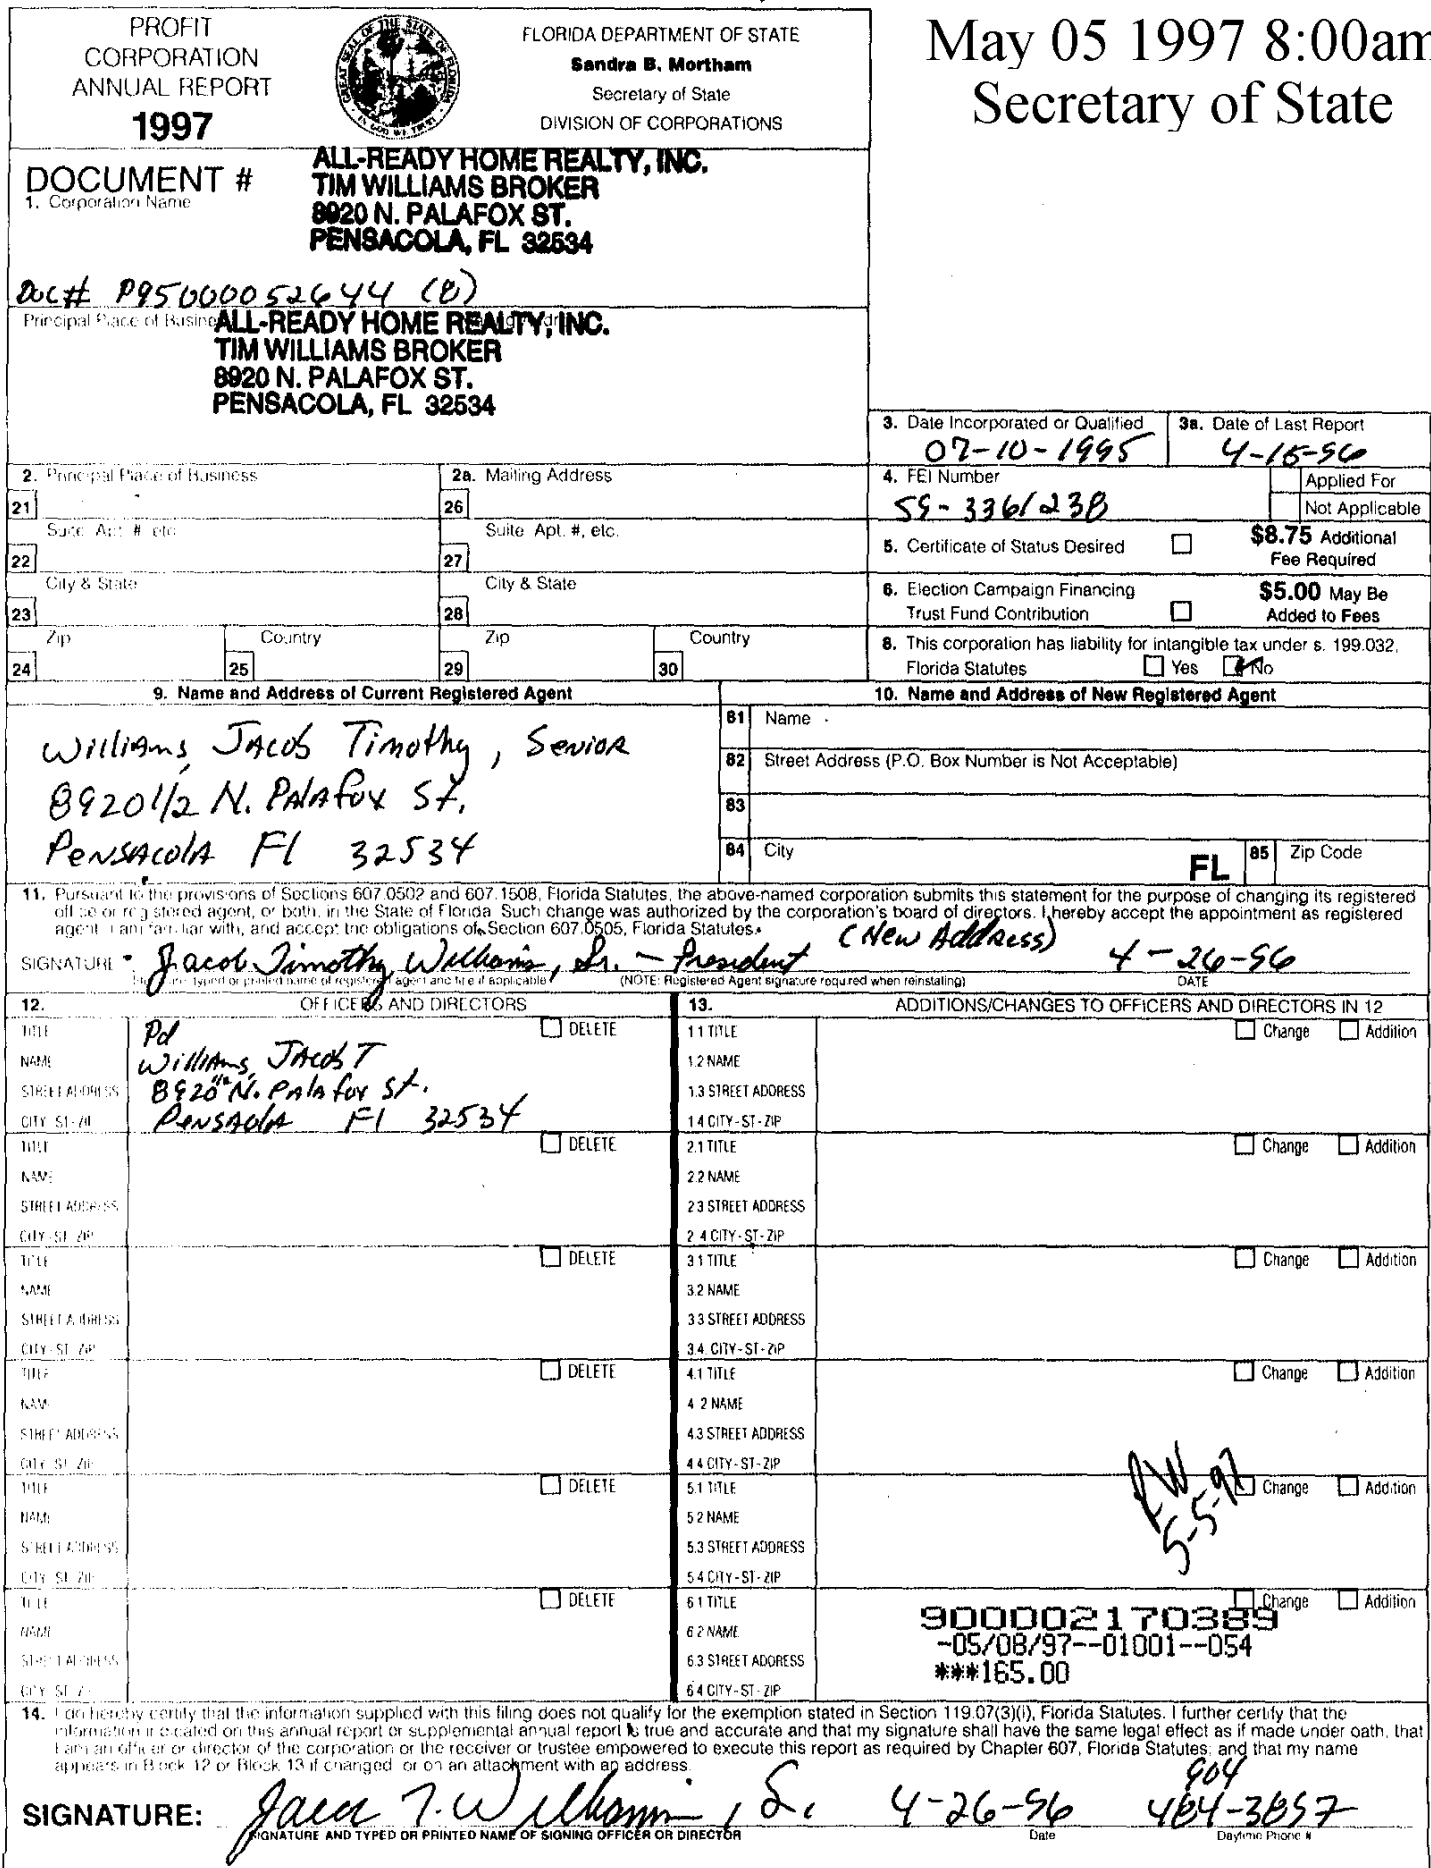 PROFIT
CORPORATION
ANNUAL REPORT
1997
FLORIDA DEPARTMENT OF STATE
Sandra B. Mortham
Secretary of State
DIVISION OF CORPORATIONS
May 05 1997 8:00am
Secretary of State
DOCUMENT #
1. Corporation Name
ALL-READY HOME REALTY, INC.
TIM WILLIAMS BROKER
8920 N. PALAFOX ST.
PENSACOLA, FL 32534
Doc# P95000052644 (8)
Principal Place of Business
ALL-READY HOME REALTY, INC.
TIM WILLIAMS BROKER
8920 N. PALAFOX ST.
PENSACOLA, FL 32534
3. Date Incorporated or Qualified
07-10-1995
3a. Date of Last Report
4-15-96
2. Principal Place of Business
2a. Mailing Address
4. FEI Number
59-3361238
Applied For
Not Applicable
21
26
Suite, Apt. #, etc.
Suite, Apt. #, etc.
5. Certificate of Status Desired
$8.75 Additional
Fee Required
22
27
City & State
City & State
6. Election Campaign Financing
Trust Fund Contribution
$5.00 May Be
Added to Fees
23
28
Zip
Country
Zip
Country
8. This corporation has liability for intangible tax under s. 199.032,
Florida Statutes
Yes
No
24
25
29
30
9. Name and Address of Current Registered Agent
10. Name and Address of New Registered Agent
Williams, Jacob Timothy, Senior
8920 1/2 N. Palafox St.
Pensacola Fl 32534
81 Name
82 Street Address (P.O. Box Number is Not Acceptable)
83
84 City
FL
85 Zip Code
11. Pursuant to the provisions of Sections 607.0502 and 607.1508, Florida Statutes, the above-named corporation submits this statement for the purpose of changing its registered
office or registered agent, or both, in the State of Florida. Such change was authorized by the corporation's board of directors. I hereby accept the appointment as registered
agent. I am familiar with, and accept the obligations of, Section 607.0505, Florida Statutes.
(New Address)
SIGNATURE Jacob Timothy Williams, Sr. - President 4-26-96
Signature, typed or printed name of registered agent and title if applicable
(NOTE: Registered Agent signature required when reinstating)
DATE
12. OFFICERS AND DIRECTORS
13. ADDITIONS/CHANGES TO OFFICERS AND DIRECTORS IN 12
TITLE Pd DELETE
NAME Williams, Jacob T
STREET ADDRESS 8920 1/2 N. Palafox St.
CITY-ST-ZIP Pensacola Fl 32534
1.1 TITLE Change Addition
1.2 NAME
1.3 STREET ADDRESS
1.4 CITY-ST-ZIP
TITLE DELETE
NAME
STREET ADDRESS
CITY-ST-ZIP
2.1 TITLE Change Addition
2.2 NAME
2.3 STREET ADDRESS
2.4 CITY-ST-ZIP
TITLE DELETE
NAME
STREET ADDRESS
CITY-ST-ZIP
3.1 TITLE Change Addition
3.2 NAME
3.3 STREET ADDRESS
3.4. CITY-ST-ZIP
TITLE DELETE
NAME
STREET ADDRESS
CITY-ST-ZIP
4.1 TITLE Change Addition
4.2 NAME
4.3 STREET ADDRESS
4.4 CITY-ST-ZIP
TITLE DELETE
NAME
STREET ADDRESS
CITY-ST-ZIP
5.1 TITLE Change Addition
5.2 NAME
5.3 STREET ADDRESS
5.4 CITY-ST-ZIP
RW
5-5-97
TITLE DELETE
NAME
STREET ADDRESS
CITY-ST-ZIP
6.1 TITLE Change Addition
6.2 NAME
6.3 STREET ADDRESS
6.4 CITY-ST-ZIP
900002170389
-05/08/97--01001--054
***165.00
14. I do hereby certify that the information supplied with this filing does not qualify for the exemption stated in Section 119.07(3)(i), Florida Statutes. I further certify that the
information indicated on this annual report or supplemental annual report is true and accurate and that my signature shall have the same legal effect as if made under oath, that
I am an officer or director of the corporation or the receiver or trustee empowered to execute this report as required by Chapter 607, Florida Statutes; and that my name
appears in Block 12 or Block 13 if changed, or on an attachment with an address.
904
SIGNATURE: Jacob T. Williams, Sr. 4-26-96 484-3857
SIGNATURE AND TYPED OR PRINTED NAME OF SIGNING OFFICER OR DIRECTOR
Date
Daytime Phone #